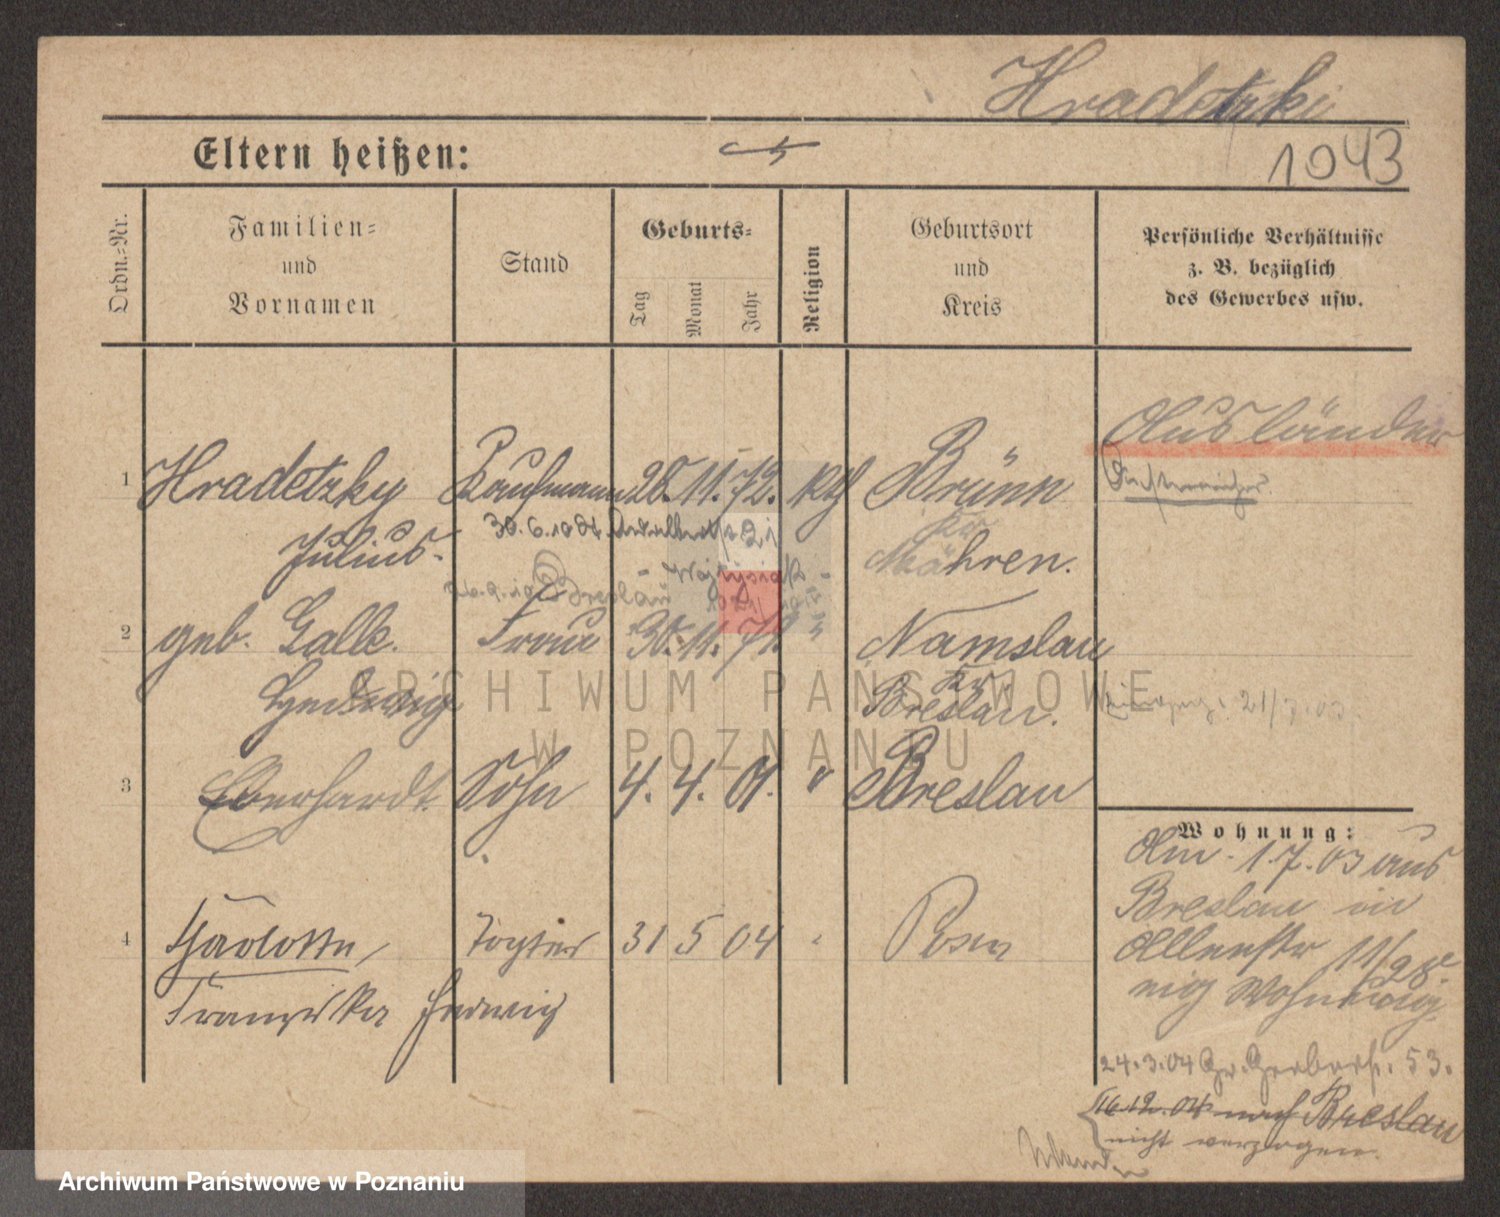 Hradetzki
Eltern heißen:
1043
Ordn.-Nr.
Familien-
und
Vornamen
Stand
Geburts-
Tag
Monat
Jahr
Religion
Geburtsort
und
Kreis
Persönliche Verhältnisse
z. B. bezüglich
des Gewerbes usw.
Ausländer
1 Hradetzky Kaufmann 28. 11. 72. kth Brünn
Julius.
30.6.1904
Mähren.
Breslau
2 geb. Galle. Frau 30. 11. 71. " Namslau
Hedwig
Kr.
Breslau.
21/7.03
ARCHIWUM PAŃSTWOWE
W POZNANIU
3 Eberhardt. Sohn 4. 4. 01. " Breslau
Wohnung:
Am 1.7.03 aus
Breslau in
4 Charlotte, Tochter 31 5 04 " Posen
Franziska Hedwig
Allerstr 11/28.
Wohnung
24.3.04 Gr. Gerberstr. 53.
16.12.04 nach Breslau
nicht verzogen.
Archiwum Państwowe w Poznaniu